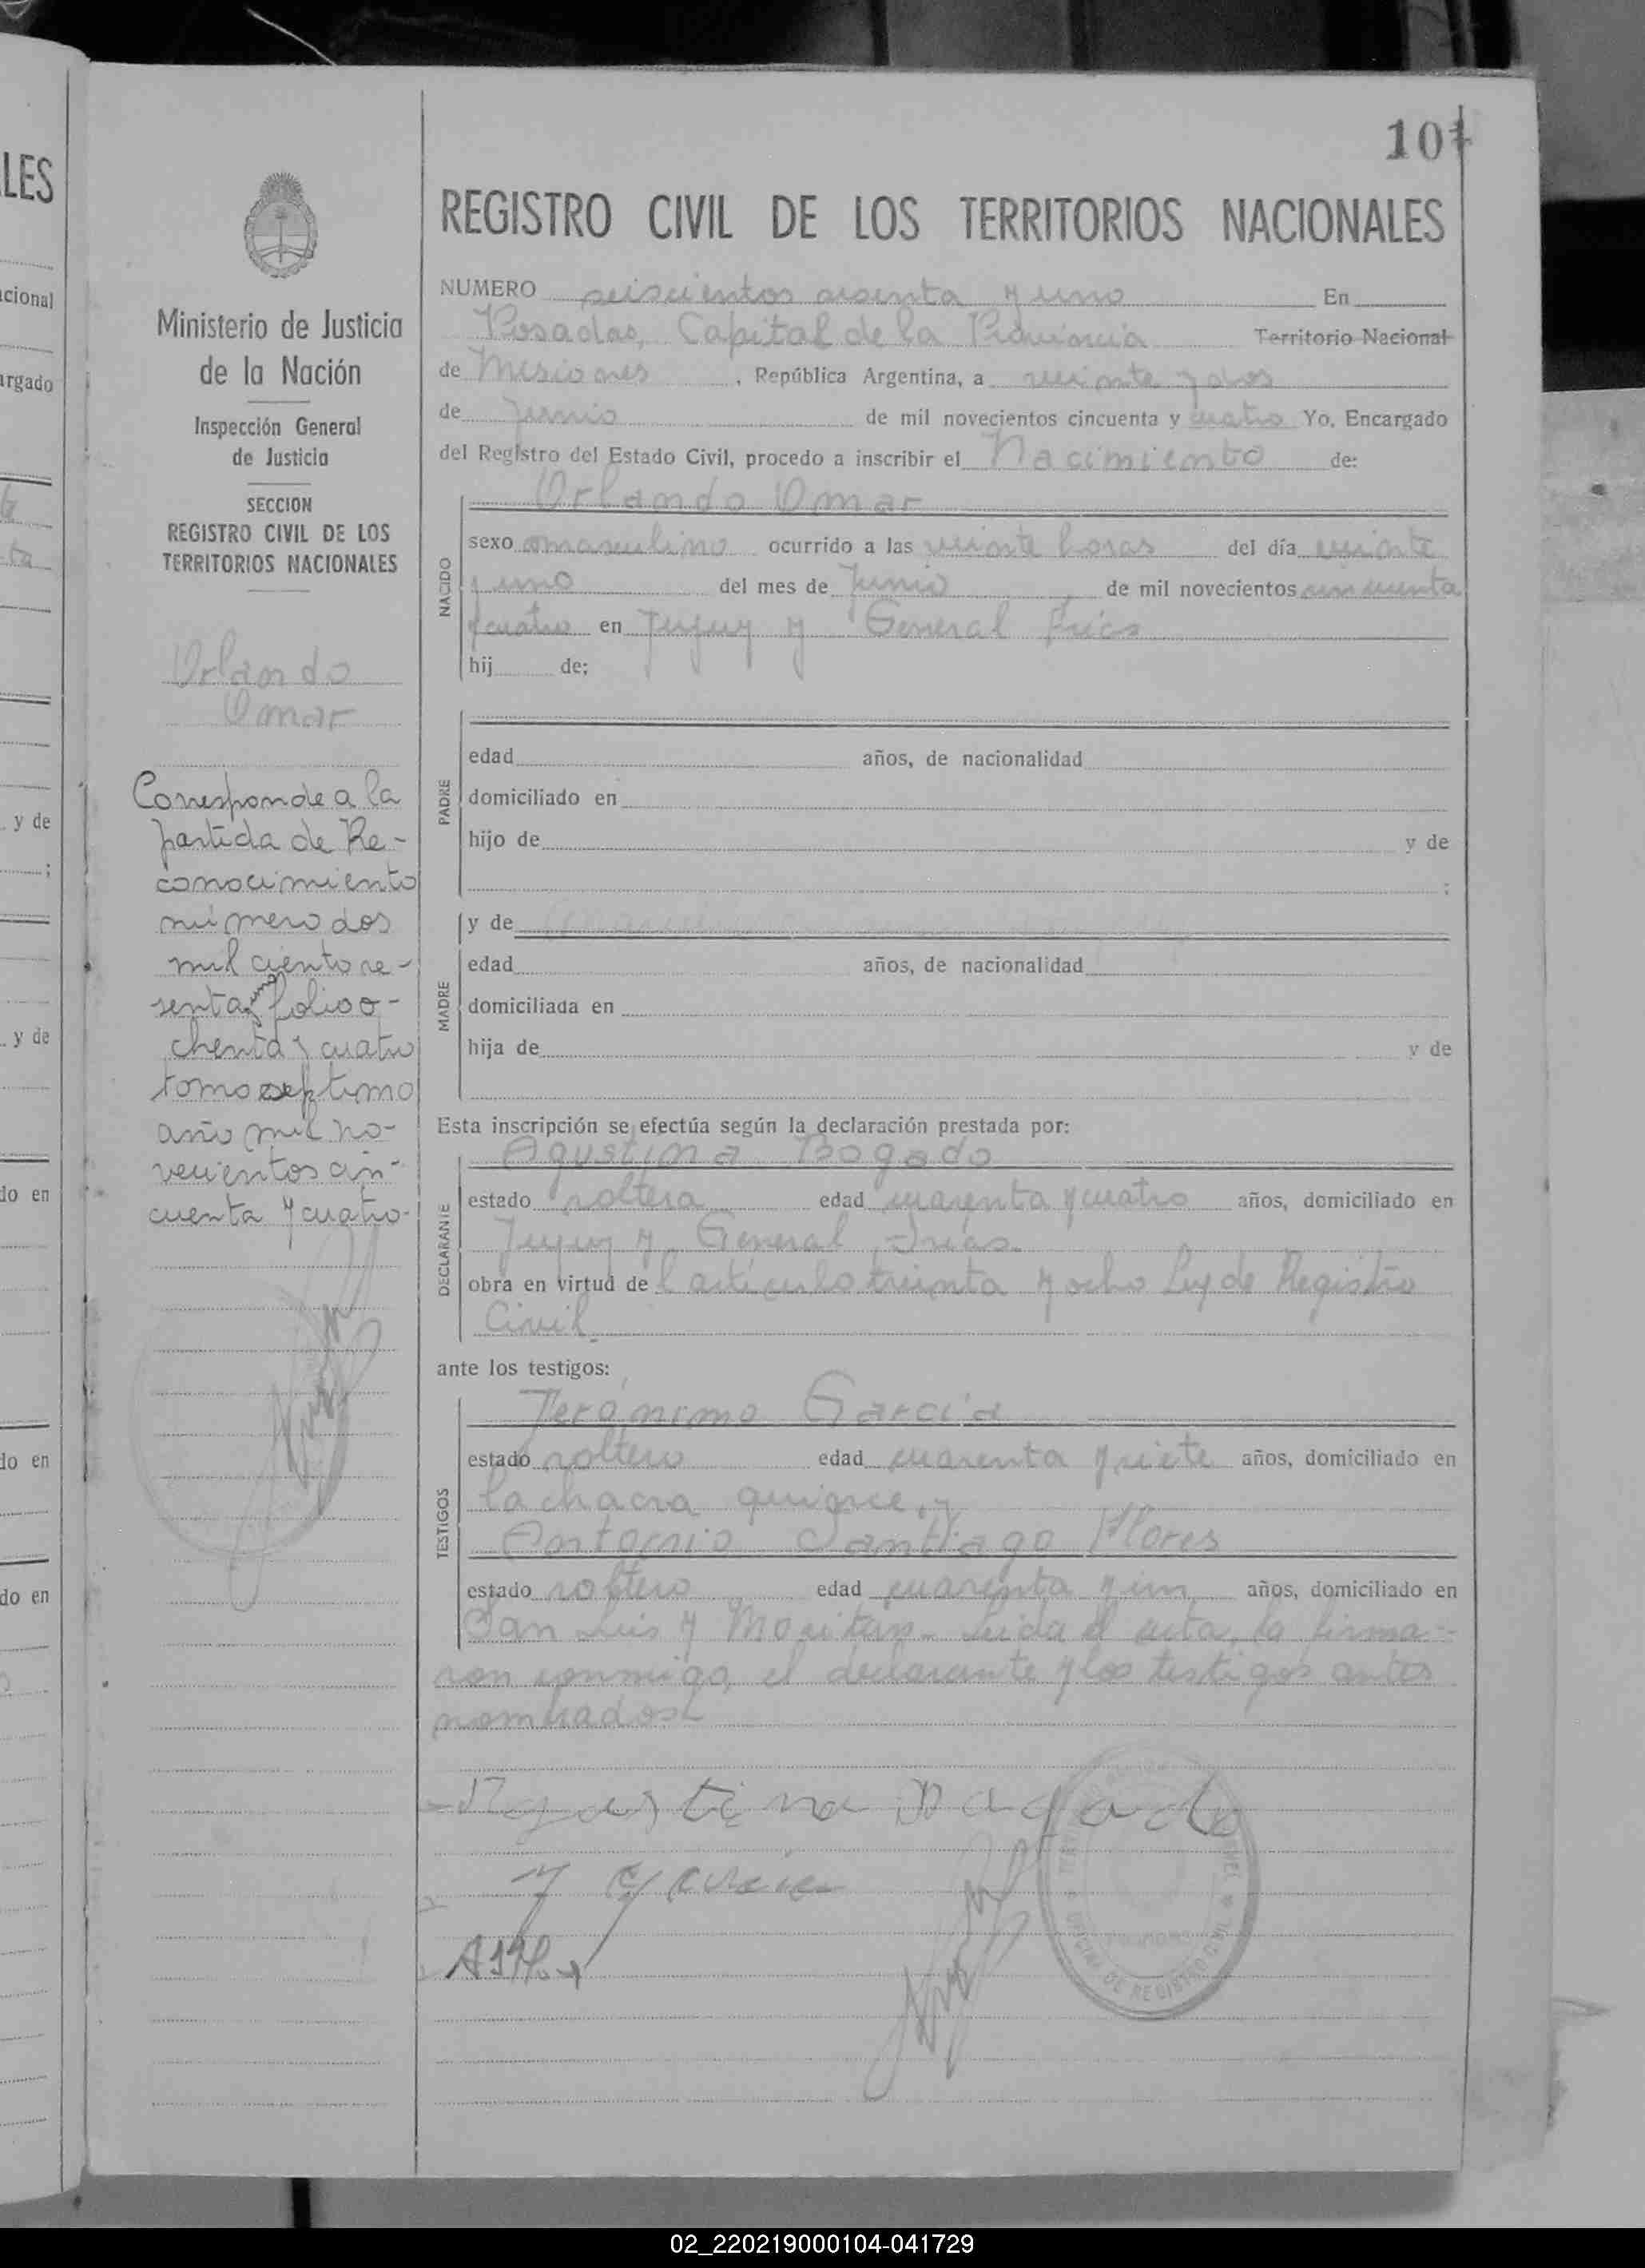 101
REGISTRO CIVIL DE LOS TERRITORIOS NACIONALES
Ministerio de Justicia
de la Nación
Inspección General
de Justicia
SECCION
REGISTRO CIVIL DE LOS
TERRITORIOS NACIONALES
Orlando
Omar
Corresponde a la
partida de Re-
conocimiento
número dos
mil ciento se-
senta y uno folio o-
chenta y cuatro
tomo septimo
año mil no-
vecientos cin-
cuenta y cuatro.
NUMERO seiscientos sesenta y uno En
Posadas, Capital de la Provincia Territorio Nacional
de Misiones, República Argentina, a veinte y dos
de Junio de mil novecientos cincuenta y cuatro Yo, Encargado
del Registro del Estado Civil, procedo a inscribir el Nacimiento de:
NACIDO
Orlando Omar
sexo masculino ocurrido a las veinte horas del día veinte
y uno del mes de Junio de mil novecientos cincuenta
y cuatro en Jujuy y General Frias
hij de;
PADRE
edad años, de nacionalidad
domiciliado en
hijo de y de
;
MADRE
y de
edad años, de nacionalidad
domiciliada en
hija de y de
Esta inscripción se efectúa según la declaración prestada por:
DECLARANTE
Agustina Bogado
estado soltera edad cuarenta y cuatro años, domiciliado en
Jujuy y General Frias.
obra en virtud de l artículo treinta y ocho Ley de Registro
Civil.
ante los testigos:
TESTIGOS
Jerónimo García
estado soltero edad cuarenta y siete años, domiciliado en
la chacra quince, y
Antonio Santiago Flores
estado soltero edad cuarenta y un años, domiciliado en
San Luis y Moritán. Leida el acta, la firma-
ron conmigo, el declarante y los testigos antes
nombrados
Agustina Bagado
J Garcia
OFICINA DE REGISTRO CIVIL
LES
acional
argado
y de
;
y de
do en
do en
do en
02_220219000104-041729